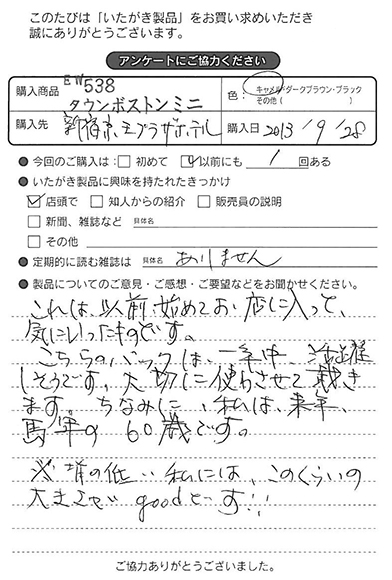 このたびは「いたがき製品」をお買い求めいただき
誠にありがとうございます。
アンケートにご協力ください
購入商品 EW538
タウンボストンミニ
色: キャメル・ダークブラウン・ブラック
その他( )
購入先 新宿京王プラザホテル 購入日 2013/9/28
● 今回のご購入は: □ 初めて ☑ 以前にも 1 回ある
● いたがき製品に興味を持たれたきっかけ
☑ 店頭で □ 知人からの紹介 □ 販売員の説明
□ 新聞、雑誌など 具体名
□ その他
● 定期的に読む雑誌は 具体名 ありません
● 製品についてのご意見・ご感想・ご要望などをお聞かせください。
これは、以前、始めてお店に入って、
気にいったものです。
こちらのバックは、一年中、活躍
しそうです。大切に使わさせて戴き
ます。ちなみに、私は、来年、
馬年の60歳です。
※背の低い私には、このくらいの
大きさで goodでーす!!
ご協力ありがとうございました。